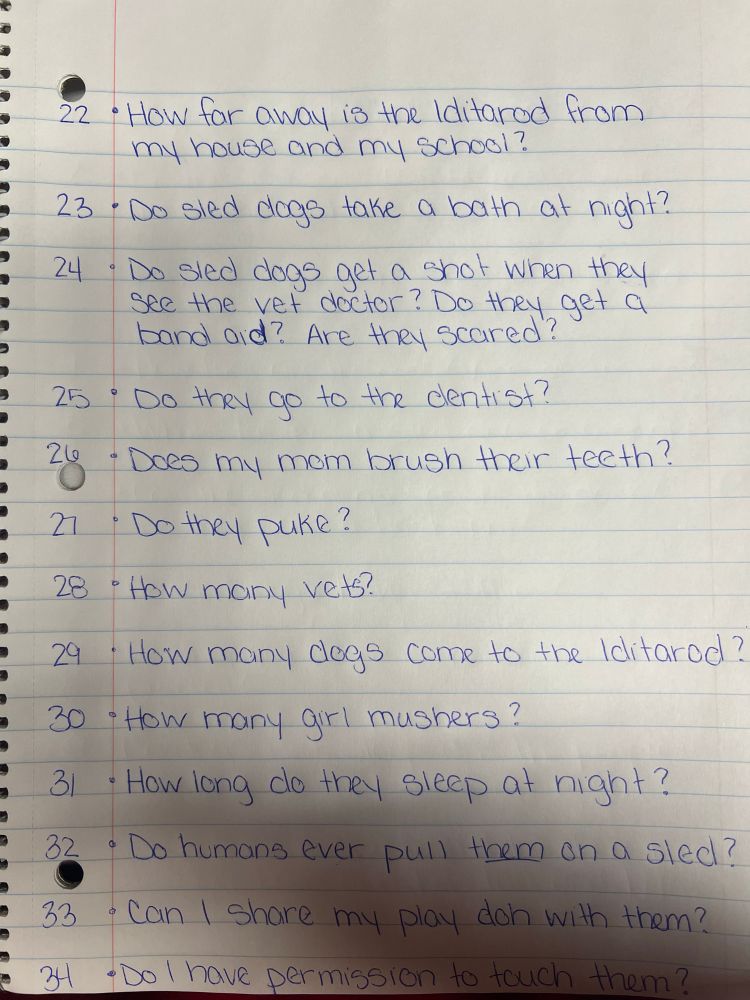 22 • How far away is the Iditarod from
my house and my school?
23 • Do sled dogs take a bath at night?
24 • Do sled dogs get a shot when they
see the vet doctor? Do they get a
band aid? Are they scared?
25 • Do they go to the dentist?
26 • Does my mom brush their teeth?
27 • Do they puke?
28 • How many vets?
29 • How many dogs come to the Iditarod?
30 • How many girl mushers?
31 • How long do they sleep at night?
32 • Do humans ever pull them on a sled?
33 • Can I share my play doh with them?
34 • Do I have permission to touch them?